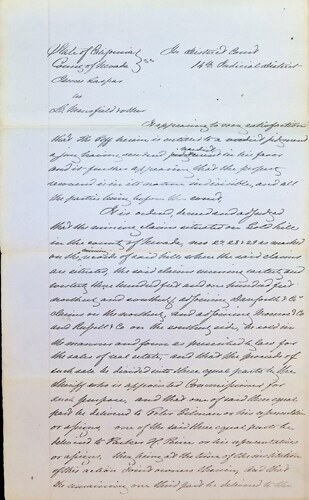 State of California
County of Nevada } ss
In District Court
14th Judicial district
James Kaspar
vs
Mansfield
It appearing to my satisfaction
that the plff herein is entitled to a
upon having rendered in his favor
and it further appearing that the property
demand is in its nature indivisible, and all
the parties being before the court,
It is ordered, decreed and adjudged
that the mining claims situated on Gold hill
in the county of Nevada, nos 27, 28 & 29 as marked
on the records of said hill where the said claims
are situated, the said claims running easterly and
westerly three hundred feet and one hundred feet
northerly and southerly adjoining Danforth & Co
claims on the northerly, and adjoining & Co
and Russell & Co on the southerly side, be sold in
the manner and form as prescribed by law for
the sales of real estate, and that the proceeds of
such sale be divided into three equal parts by the
Sheriff who is appointed Commissioner for
such purpose, and that one of said three equal
parts be delivered to Peter or his representative
or assigns, one of the said three equal parts be
delivered to or his representative
or assigns, they being at the time of the institution
of this action joint owners therein, and that
the remaining one third part be delivered to the